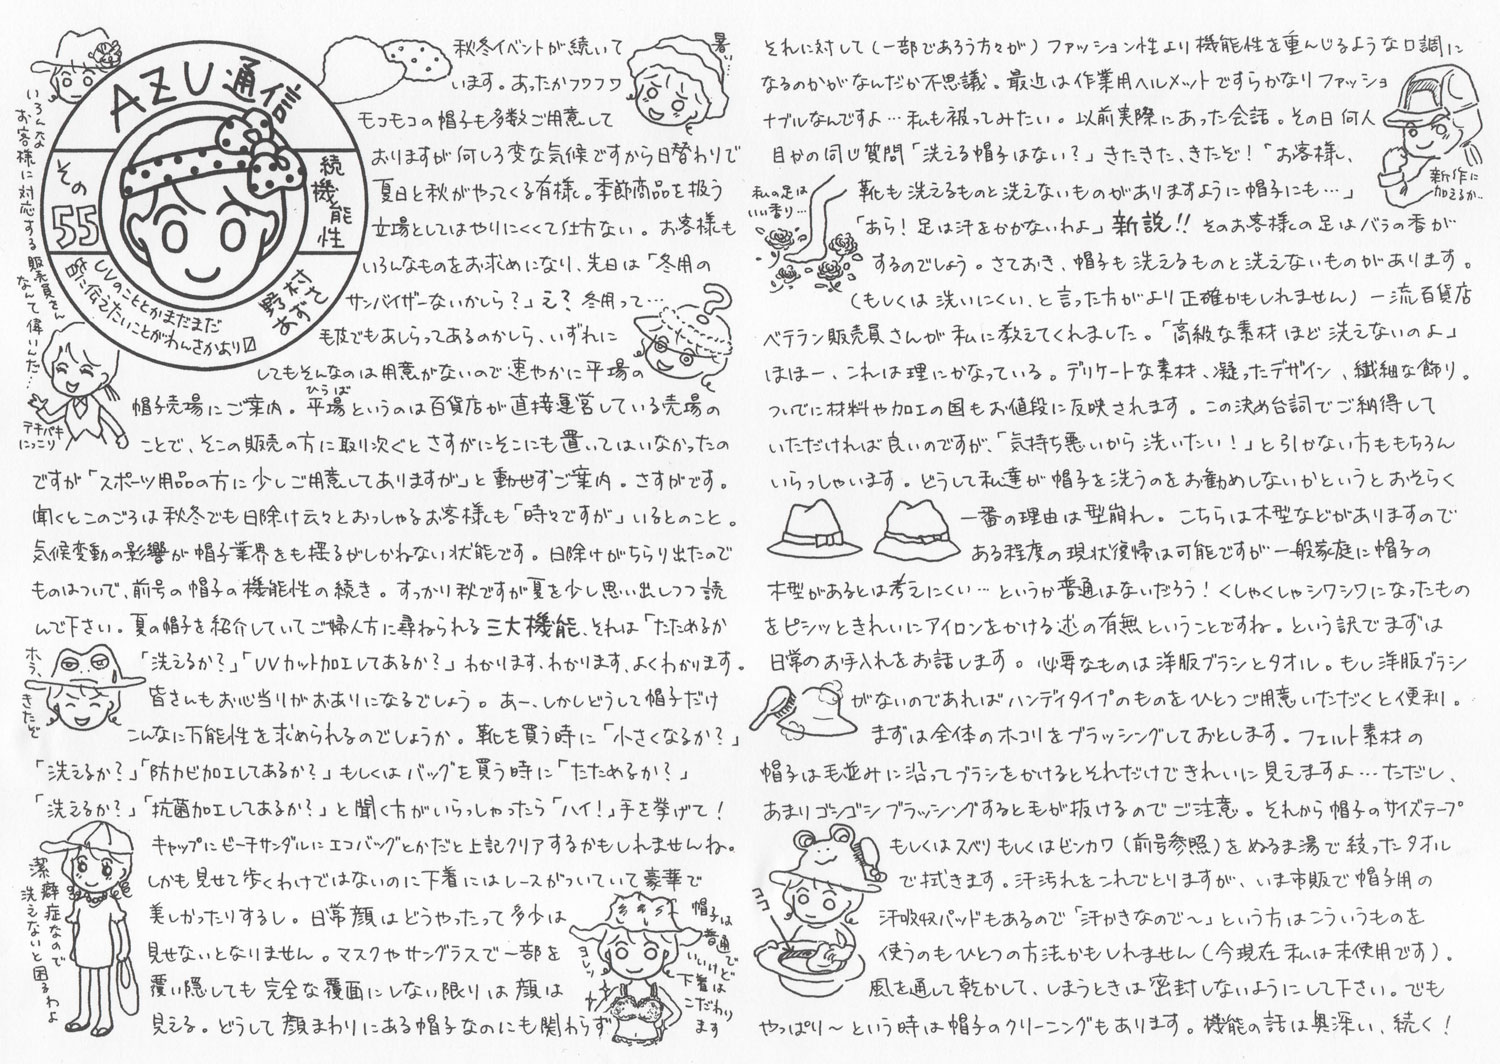 AZU通信
その
55
続機能性
UVのこととかまだまだ
皆に伝えたいことがわんさかより〼
野村あずさ
いろんな
お客様に対応する販売員さん
なんて偉いんだ…
テキパキ
にっこり
秋冬イベントが続いて
います。あったかフワフワ
モコモコの帽子も多数ご用意して
おりますが何しろ変な気候ですから日替わりで
夏日と秋がやってくる有様。季節商品を扱う
立場としてはやりにくくて仕方ない。お客様も
いろんなものをお求めになり、先日は「冬用の
サンバイザーないかしら?」え?冬用って…
毛皮でもあしらってあるのかしら、いずれに
してもそんなのは用意がないので速やかに平場の
ひらば
帽子売場にご案内。平場というのは百貨店が直接運営している売場の
ことで、そこの販売の方に取り次ぐとさすがにそこにも置いてはいなかったの
ですが「スポーツ用品の方に少しご用意してありますが」と動せずご案内。さすがです。
聞くとこのごろは秋冬でも日除け云々とおっしゃるお客様も「時々ですが」いるとのこと。
気候変動の影響が帽子業界をも揺るがしかねない状態です。日除けがちらり出たので
ものはついで、前号の帽子の機能性の続き。すっかり秋ですが夏を少し思い出しつつ読
んで下さい。夏の帽子を紹介していてご婦人方に尋ねられる三大機能、それは「たためるか
「洗えるか?」「UVカット加工してあるか?」わかります、わかります、よくわかります。
皆さんもお心当りがおありになるでしょう。あー、しかしどうして帽子だけ
こんなに万能性を求められるのでしょうか。靴を買う時に「小さくなるか?」
「洗えるか?」「防カビ加工してあるか?」もしくはバッグを買う時に「たためるか?」
「洗えるか?」「抗菌加工してあるか?」と聞く方がいらっしゃったら「ハイ!」手を挙げて!
キャップにビーチサンダルにエコバッグとかだと上記クリアするかもしれませんね。
しかも見せて歩くわけではないのに下着にはレースがついていて豪華で
美しかったりするし。日常顔はどうやったって多少は
見せないとなりません。マスクやサングラスで一部を
覆い隠しても完全な覆面にしない限りは顔は
見える。どうして顔まわりにある帽子なのにも関わらず
暑い…
ホラ、きたぞ
潔癖症なので
洗えないと困るわよ
帽子は
普通で
いいけど
下着は
こだわり
ます
ヨレッ
それに対して(一部であろう方々が)ファッション性より機能性を重んじるような口調に
なるのかがなんだか不思議。最近は作業用ヘルメットですらかなりファッショ
ナブルなんですよ…私も被ってみたい。以前実際にあった会話。その日何人
目かの同じ質問「洗える帽子はない?」きたきた、きたぞ!「お客様、
靴も洗えるものと洗えないものがありますように帽子にも…」
「あら!足は汗をかかないわよ」新説!!そのお客様の足はバラの香が
するのでしょう。さておき、帽子も洗えるものと洗えないものがあります。
(もしくは洗いにくい、と言った方がより正確かもしれません)一流百貨店
ベテラン販売員さんが私に教えてくれました。「高級な素材ほど洗えないのよ」
ほほー、これは理にかなっている。デリケートな素材、凝ったデザイン、繊細な飾り。
ついでに材料や加工の国もお値段に反映されます。この決め台詞でご納得して
いただければ良いのですが、「気持ち悪いから洗いたい!」と引かない方ももちろん
いらっしゃいます。どうして私達が帽子を洗うのをお勧めしないかというとおそらく
一番の理由は型崩れ。こちらは木型などがありますので
ある程度の現状復帰は可能ですが一般家庭に帽子の
木型があるとは考えにくい…というか普通はないだろう!くしゃくしゃシワシワになったもの
をピシッときれいにアイロンをかける術の有無ということですね。という訳でまずは
日常のお手入れをお話します。必要なものは洋服ブラシとタオル。もし洋服ブラシ
がないのであればハンディタイプのものをひとつご用意いただくと便利。
まずは全体のホコリをブラッシングしておとします。フェルト素材の
帽子は毛並みに沿ってブラシをかけるとそれだけできれいに見えますよ…ただし、
あまりゴシゴシブラッシングすると毛が抜けるのでご注意。それから帽子のサイズテープ
もしくはスベリもしくはビンカワ(前号参照)をぬるま湯で絞ったタオル
で拭きます。汗汚れをこれでとりますが、いま市販で帽子用の
汗吸収パッドもあるので「汗かきなので〜」という方はこういうものを
使うのもひとつの方法かもしれません(今現在私は未使用です)。
風を通して乾かして、しまうときは密封しないようにして下さい。でも
やっぱり〜という時は帽子のクリーニングもあります。機能の話は奥深い、続く!
私の足は
いい香り…
新作に
加えるか…
ヨコ